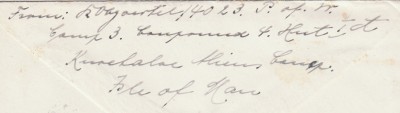 From: 14023. P. of W.
Camp 3. Compound 4. Hut
Knockaloe Aliens Camp.
Isle of Man